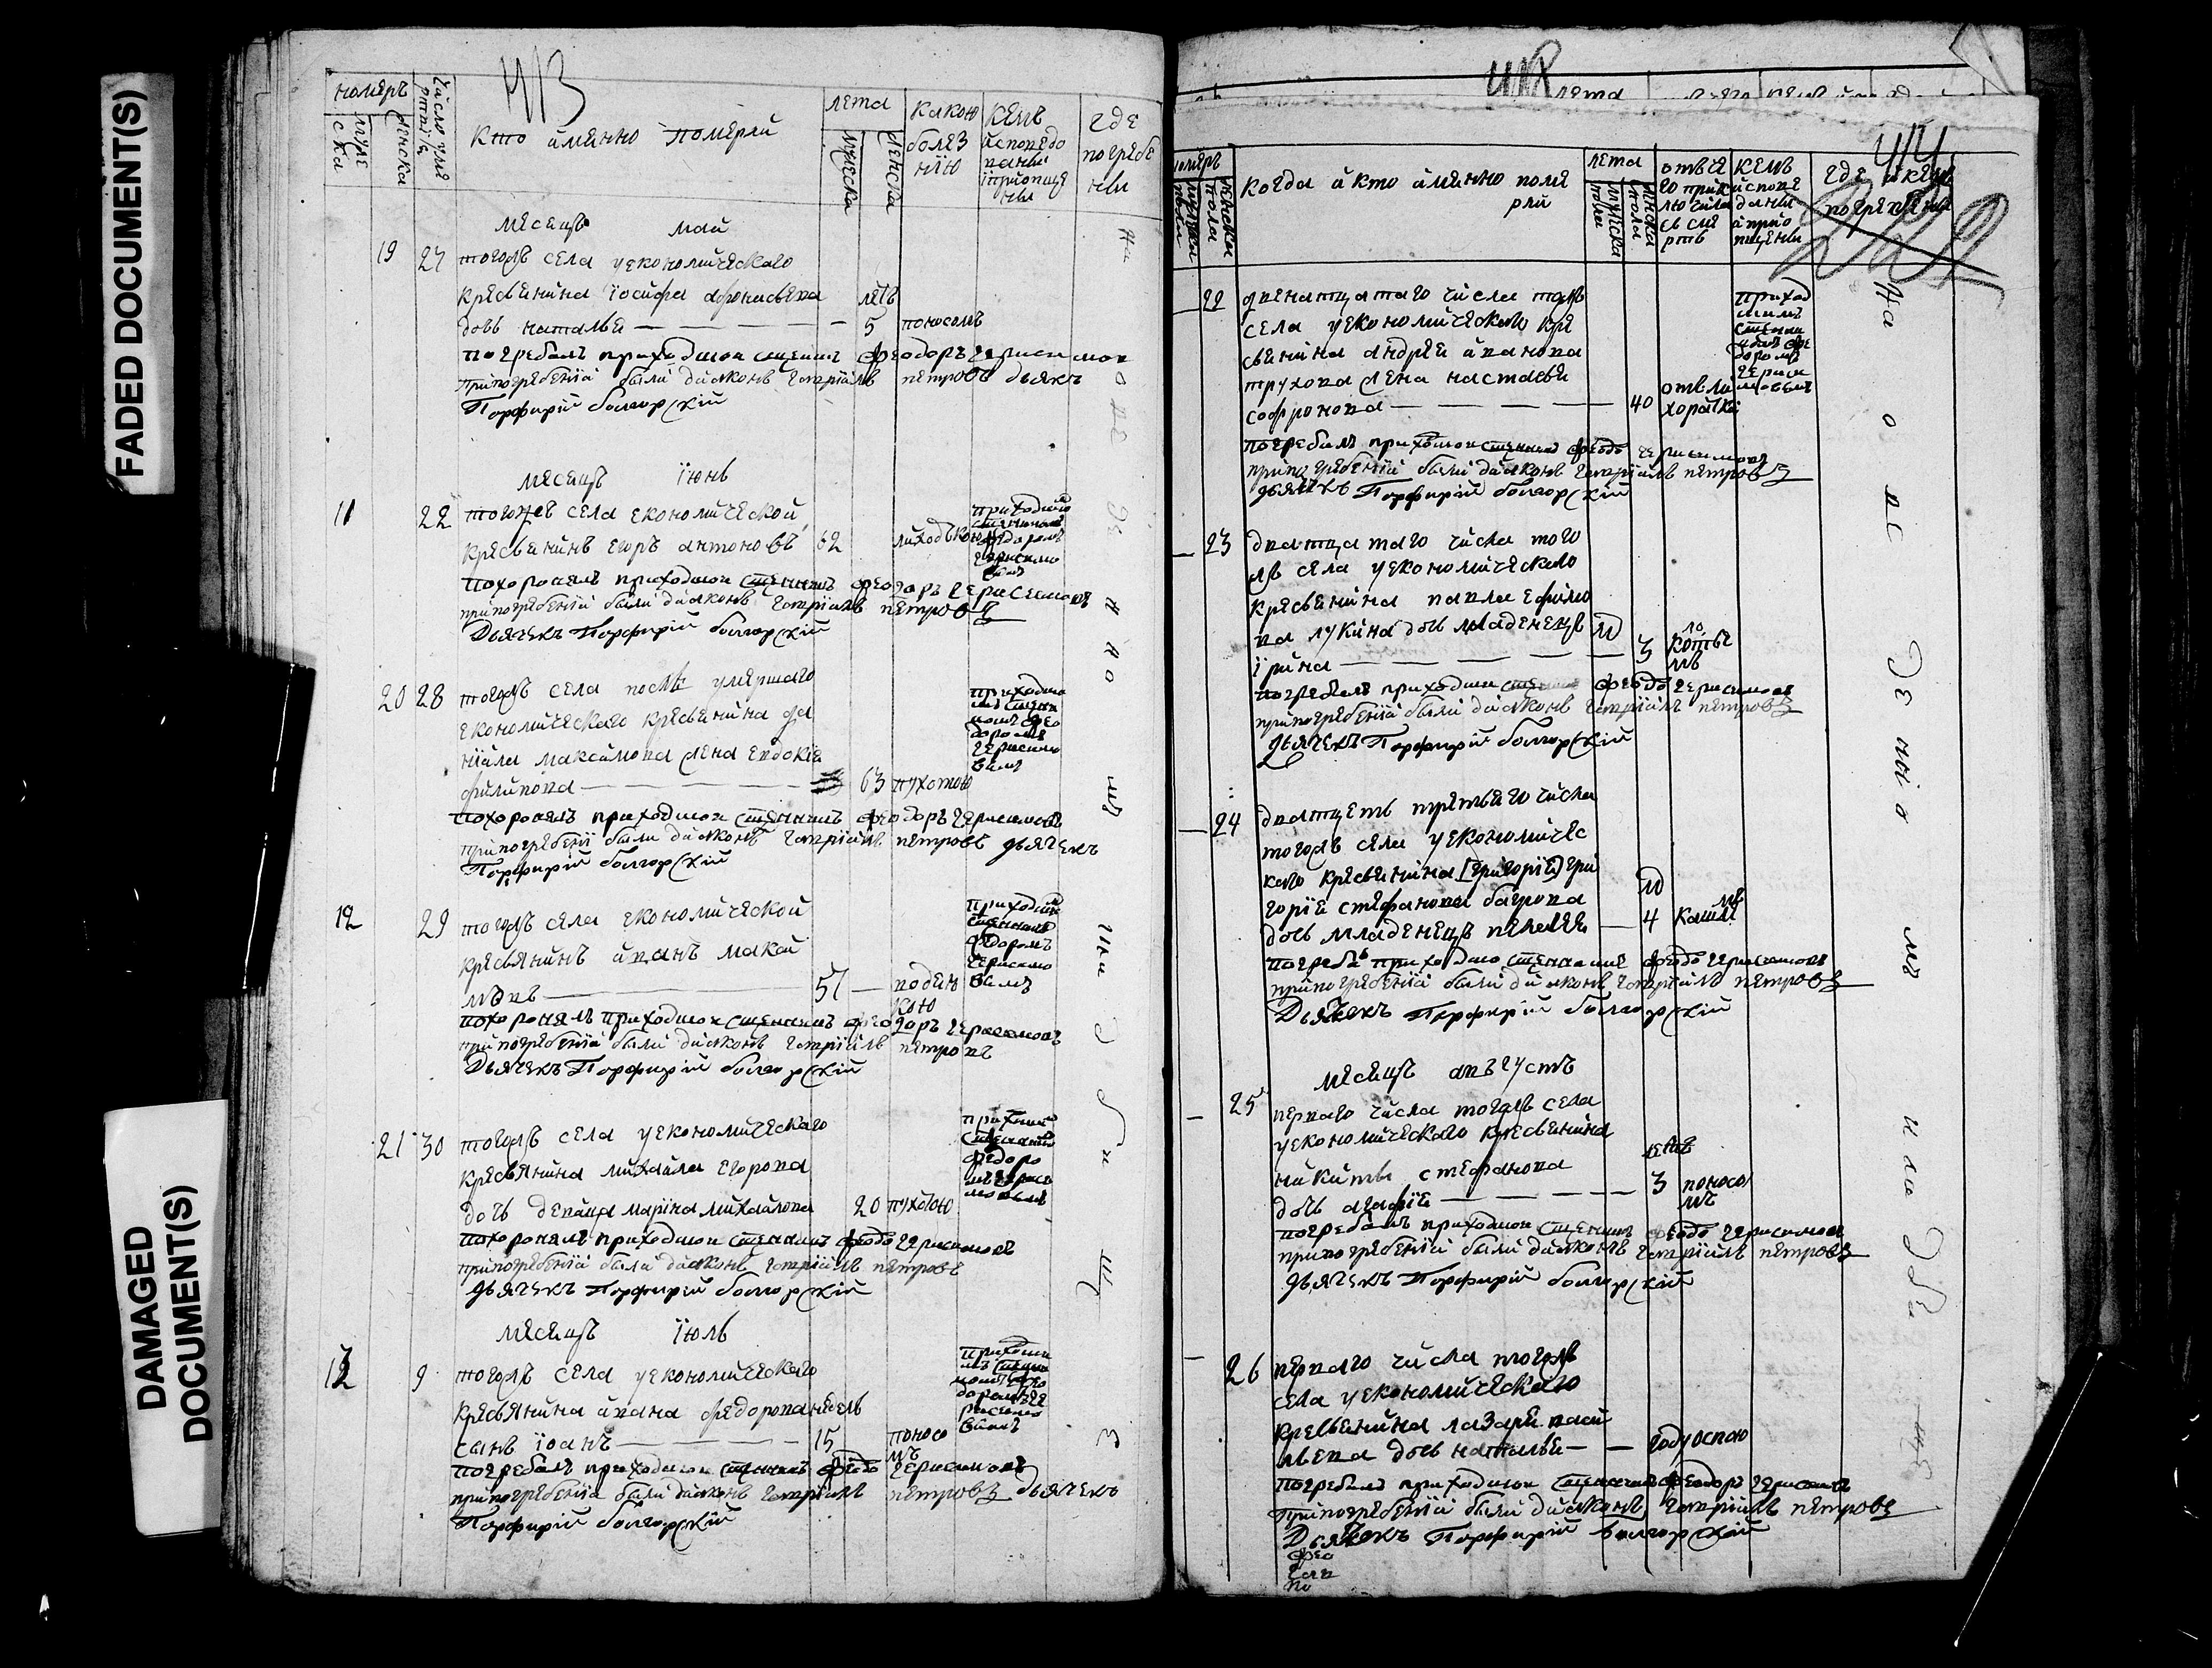 FADED DOCUMENT(S)
DAMAGED
DOCUMENT(S)
413
номеръ
число умертвiя
кто именно померли
лета
какою болезнiю
кемъ исповеданы i приопщены
где погребены
муже ска
женска
мужеска
женска
месяцъ май
19 27 тогожъ села у економического
кресьянина iосифа афонасьева летъ
дочь наталья — — — — 5 поносомъ
погребалъ приходшои сщенникъ феодоръ герасимовъ
при погребенiи были дияконъ гаврiилъ петровъ дьячекъ
Порфирiй болгорскiй
месяцъ iюнь
11 22 тогожъ села економической
кресьянинъ егоръ антоновъ 62 лиходъкою
приходшимъ сщенникомъ федоромъ герасимовымъ
похоронялъ приходшои сщенникъ феодоръ герасимовъ
при погребенiи были дияконъ гаврiилъ петровъ
Дьячекъ Порфирiй болгорскiй
20 28 тогожъ села после умершаго
економического кресьянина да
нiйла максимова жена евдокiя
филипова — — — — 63 пухотою
приходшимъ сщенникомъ феодоромъ герасимовымъ
похоронялъ приходшои сщенникъ феодоръ герасимовъ
при погребенiи были дияконъ гаврiилъ петровъ дьячекъ
Порфирiй болгорскiй
12 29 тогожъ села економической
кресьянинъ иванъ макси
мовъ — 57 —
приходшимъ сщенникомъ федоромъ герасимовымъ
похоронялъ приходшои сщенникъ феодоръ герасимовъ
при погребенiи были дияконъ гаврiилъ петровъ
Дьячекъ Порфирiй болгорскiй
21 30 тогожъ села у економического
кресьянина михайла егорова
дочь девица марiна михайлова 20 пухотою
похоронялъ приходшои сщенникъ феодоръ герасимовъ
при погребенiи были дияконъ гаврiилъ петровъ
дьячекъ Порфирiй болгорскiй
месяцъ iюль
13 9 тогожъ села у економического
кресьянина ивана федорова недель
сынъ iоанъ — — — 15 поносомъ
погребалъ приходшои сщенникъ феодоръ герасимовъ
при погребенiи были дияконъ гаврiилъ петровъ дьячекъ
Порфирiй болгорскiй
лета
414
номеръ
когда и кто именно померли
лета
отъ чего приключилась смерть
кемъ исповеданы и приопщены
где и кемъ погребены
мужеска пола
женска пола
22 двенатцатаго числа тогожъ
села у економическаго кре
сьянина андрея иванова
трухова жена настасья
софронова — — — — 40 отъ лихоратки
приходшимъ сщенникомъ феодоромъ герасимовымъ
погребалъ приходшои сщенникъ феодоръ герасимовъ
при погребенiи были дияконъ гаврiилъ петровъ
дьячекъ Порфирiй болгорскiй
23 дватцатаго числа того
жъ села у економическаго
кресьянина павла ефимо
ва лукина дочь младенецъ
iрина — — — — 3
погребалъ приходшои сщенникъ феодоръ герасимовъ
при погребенiи были дияконъ гаврiилъ петровъ
дьячекъ Порфирiй болгорскiй
24 дватцеть третьяго числа
тогожъ села у економичес
каго кресьянина [григорiя] гри
горiя стефанова багрова
дочь младенецъ пелагея — 4 кашлемъ
погребалъ приходшои сщенникъ феодоръ герасимовъ
при погребенiи были дияконъ гаврiилъ петровъ
Дьячекъ Порфирiй болгорскiй
месяцъ августъ
25 перваго числа тогожъ села
у економическаго кресьянина
никиты стефанова летъ
дочь агафiя — — — — 3 поносомъ
погребалъ приходшои сщенникъ феодоръ герасимовъ
при погребенiи были дияконъ гаврiилъ петровъ
дьячекъ Порфирiй болгорскiй
26 перваго числа тогожъ
села у економическаго
кресьянина лазаря васи
льева дочь наталья — — году оспою
погребалъ приходшои сщенникъ феодоръ герасимовъ
при погребенiи были дияконъ гаврiилъ петровъ
Дьячекъ Порфирiй болгорскiй